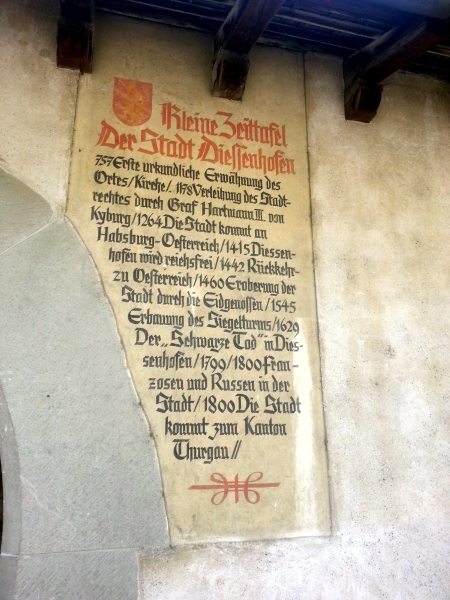 Kleine Zeittafel
Der Stadt Diessenhofen
757 Erste urkundliche Erwähnung des
Ortes/Kirche/. 1178 Verleihung des Stadt-
rechtes durch Graf Hartmann III. von
Kyburg/1264 Die Stadt kommt an
Habsburg-Oesterreich/1415 Diessen-
hofen wird reichsfrei/1442 Rückkehr
zu Oesterreich/1460 Eroberung der
Stadt durch die Eidgenossen/1545
Erbauung des Siegelturms/1629
Der „Schwarze Tod" in Dies-
senhofen/1799/1800 Fran-
zosen und Russen in der
Stadt/1800 Die Stadt
kommt zum Kanton
Thurgau//